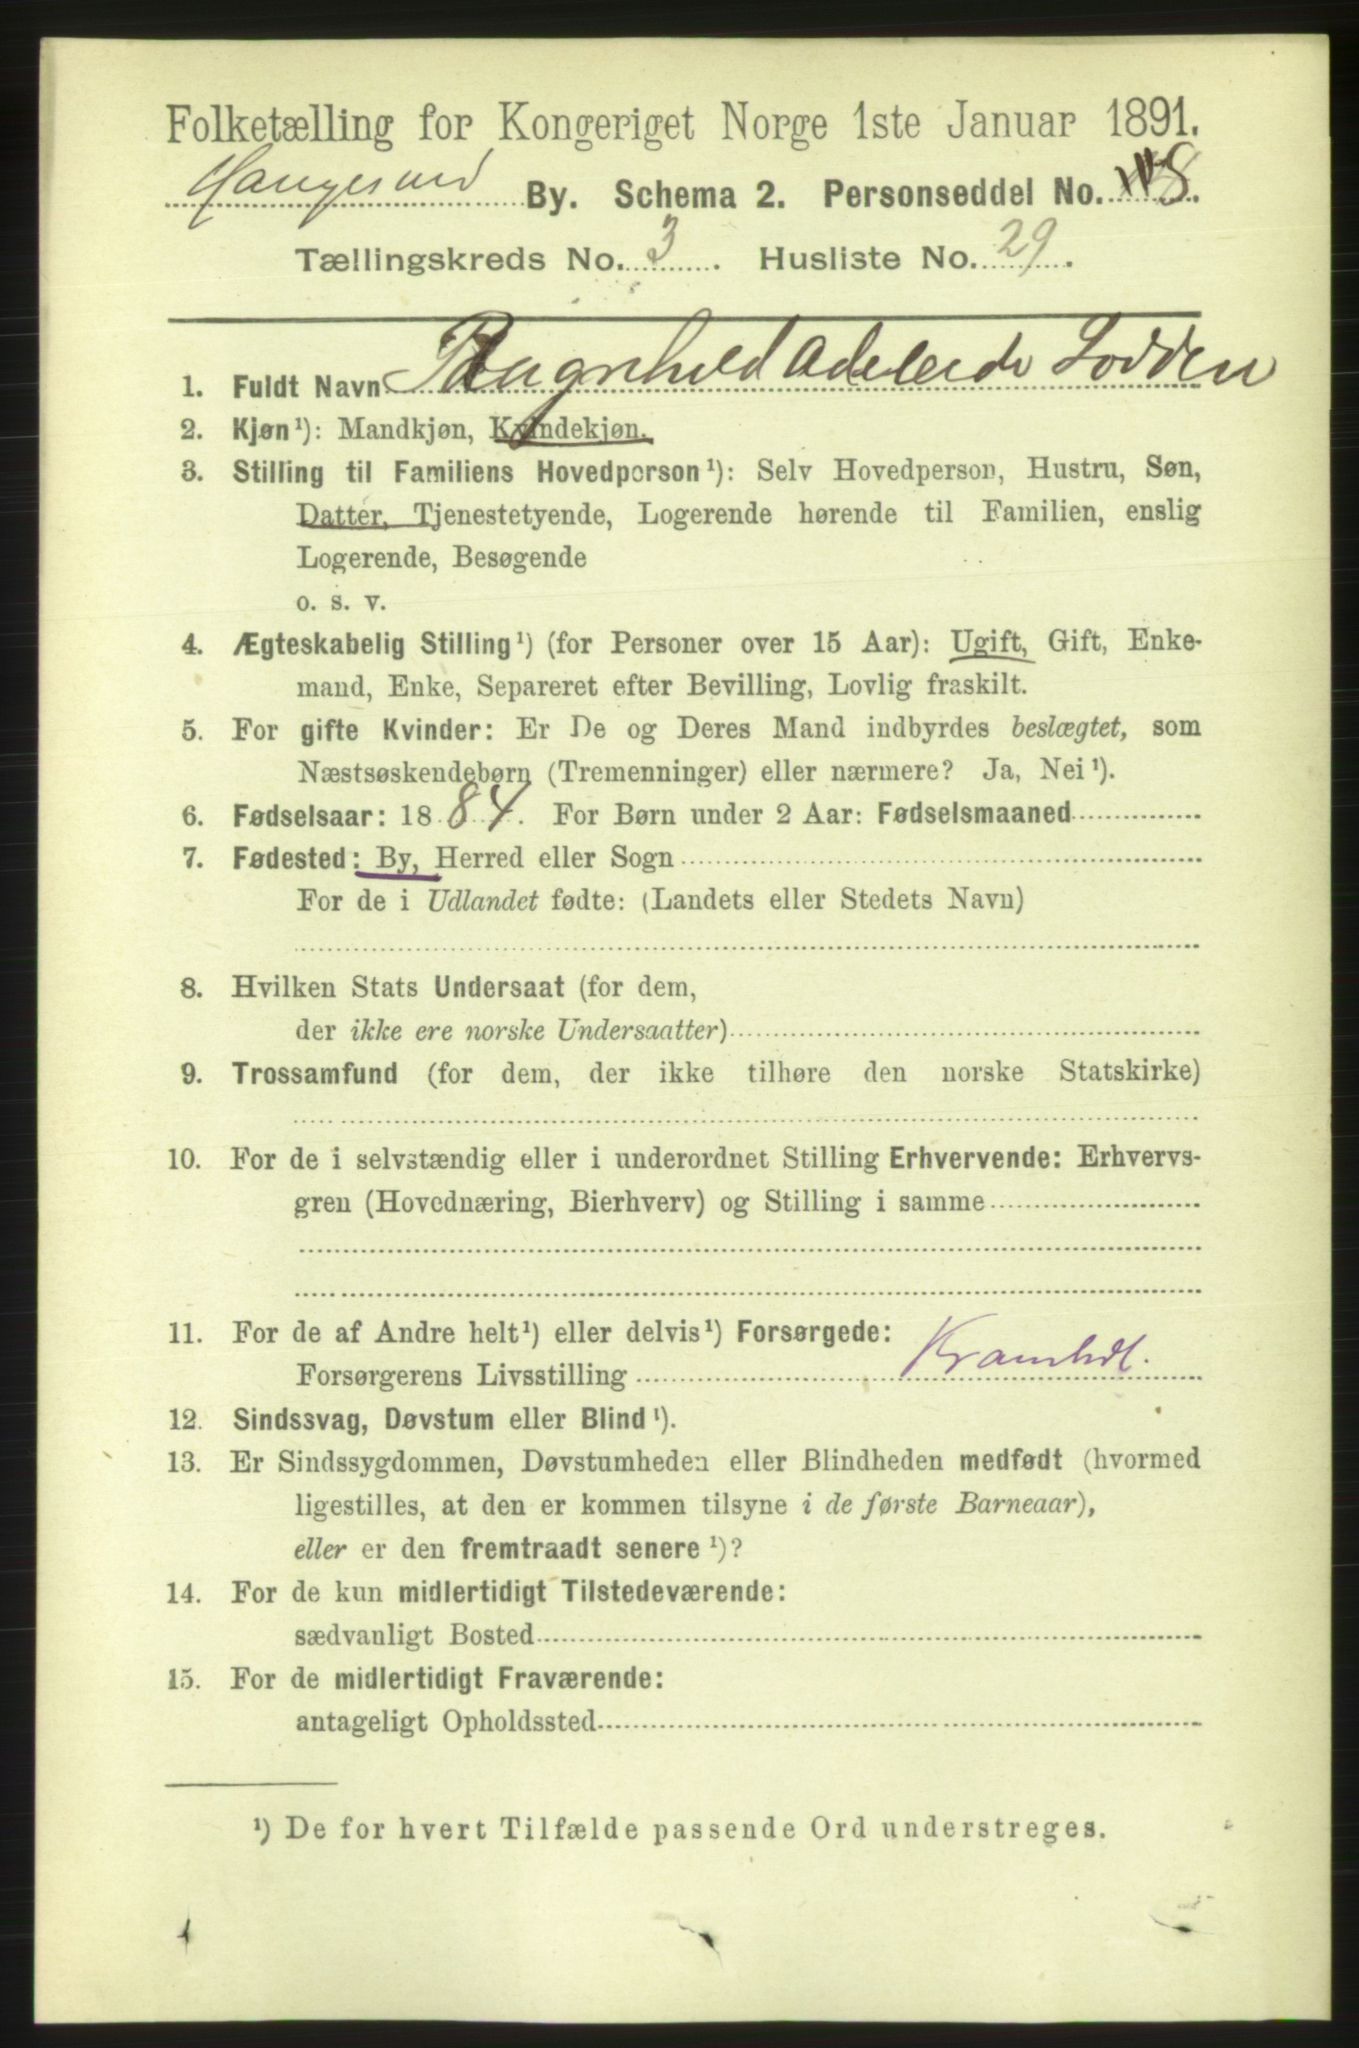 Folketælling for Kongeriget Norge 1ste Januar 1891.
Haugesund By. Schema 2. Personseddel No. 8.
Tællingskreds No. 3. Husliste No. 29.
1. Fuldt Navn Ragnhild Adeleide Lodden
2. Kjøn¹): Mandkjøn, Kvindekjøn.
3. Stilling til Familiens Hovedperson¹): Selv Hovedperson, Hustru, Søn,
Datter, Tjenestetyende, Logerende hørende til Familien, enslig
Logerende, Besøgende
o. s. v.
4. Ægteskabelig Stilling¹) (for Personer over 15 Aar): Ugift, Gift, Enke-
mand, Enke, Separeret efter Bevilling, Lovlig fraskilt.
5. For gifte Kvinder: Er De og Deres Mand indbyrdes beslægtet, som
Næstsøskendebørn (Tremenninger) eller nærmere? Ja, Nei¹).
6. Fødselsaar: 1884. For Børn under 2 Aar: Fødselsmaaned
7. Fødested: By, Herred eller Sogn
For de i Udlandet fødte: (Landets eller Stedets Navn)
8. Hvilken Stats Undersaat (for dem,
der ikke ere norske Undersaatter)
9. Trossamfund (for dem, der ikke tilhøre den norske Statskirke)
10. For de i selvstændig eller i underordnet Stilling Erhvervende: Erhvervs-
gren (Hovednæring, Bierhverv) og Stilling i samme
11. For de af Andre helt¹) eller delvis¹) Forsørgede:
Forsørgerens Livsstilling Kramhdl.
12. Sindssvag, Døvstum eller Blind¹).
13. Er Sindssygdommen, Døvstumheden eller Blindheden medfødt (hvormed
ligestilles, at den er kommen tilsyne i de første Barneaar),
eller er den fremtraadt senere¹)?
14. For de kun midlertidigt Tilstedeværende:
sædvanligt Bosted
15. For de midlertidigt Fraværende:
antageligt Opholdssted
¹) De for hvert Tilfælde passende Ord understreges.